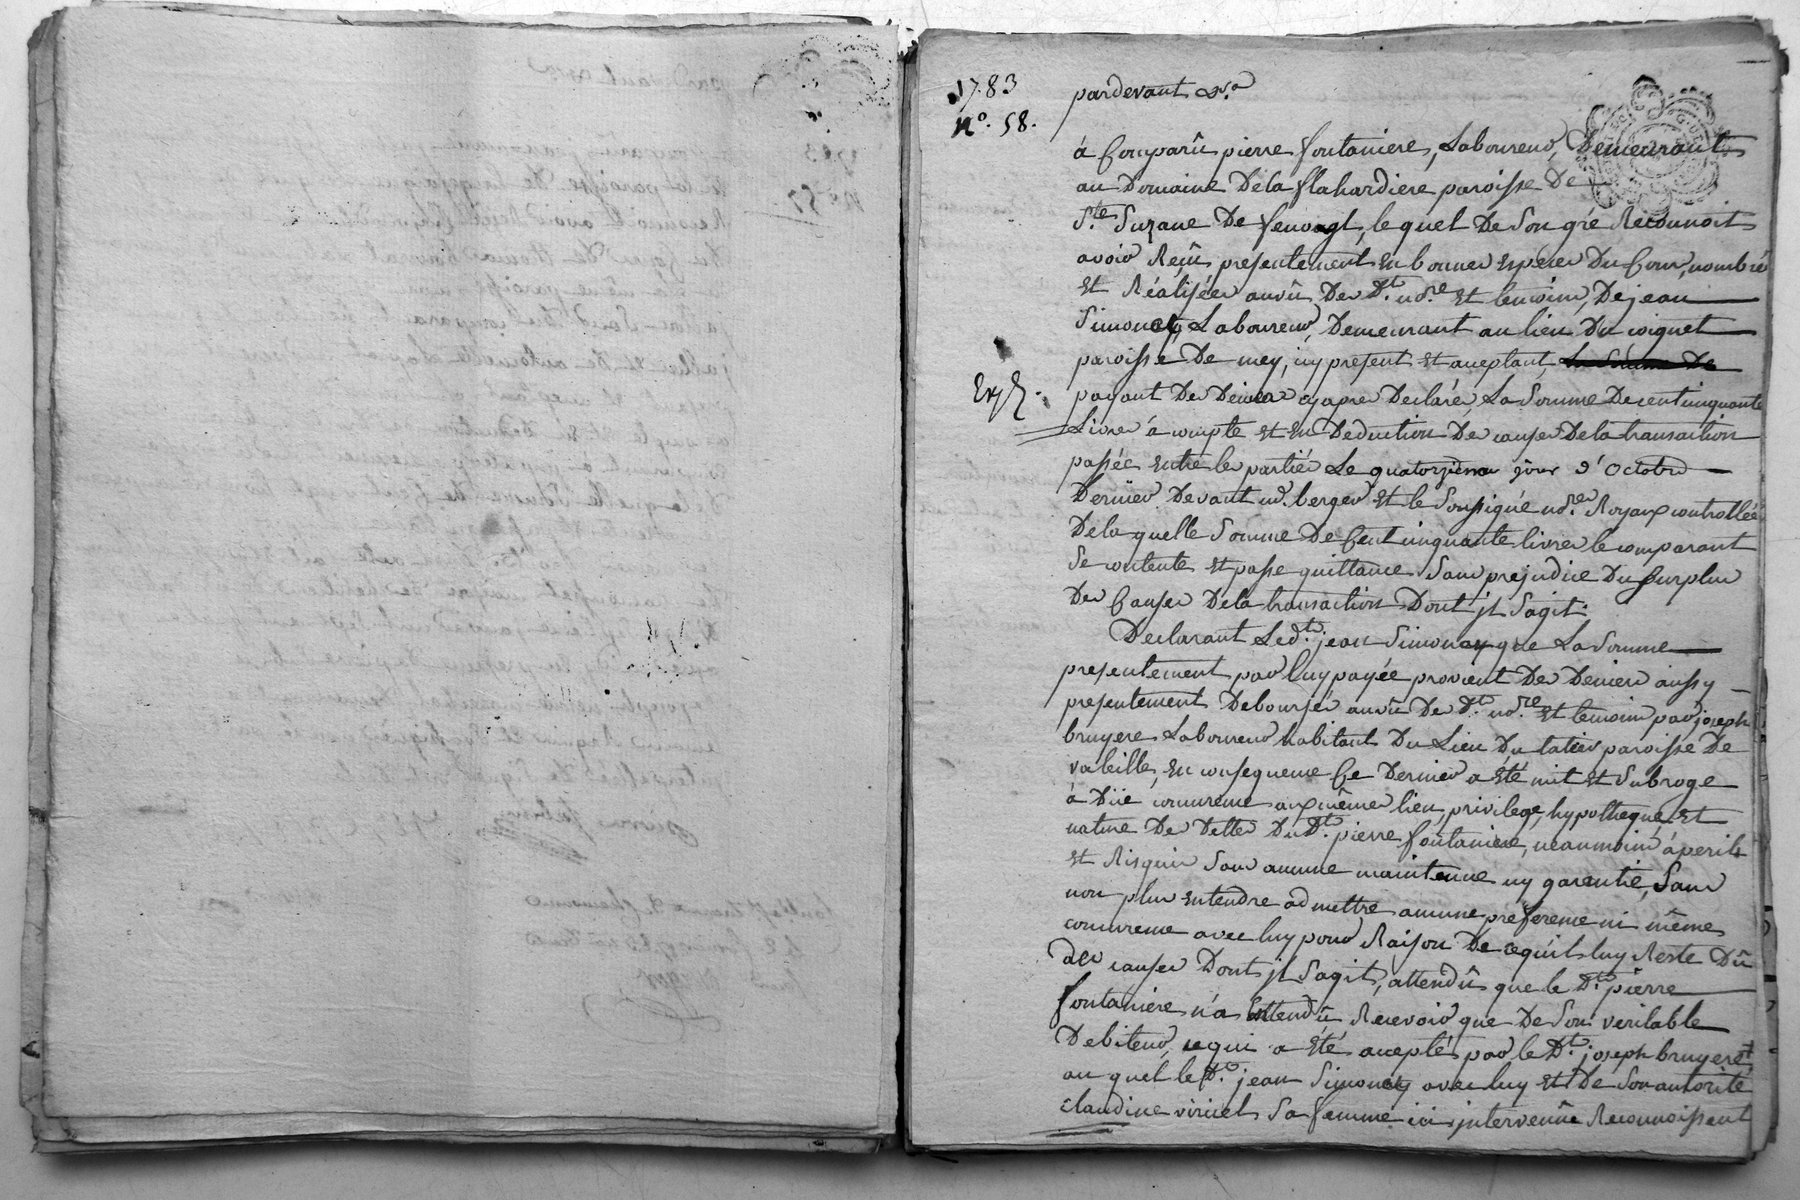 1783
N.o 58.
pardevant &.a
à Comparû pierre fontaniere, Laboureur, Demeurant
au Domaine Dela flahardiere paroisse De
S.te Suzane De le quel De Son gré Reconnoit
avoir Reçû presentement En bonnes Especes Du Cour, nombré
Et Réalisées auvû Des d.t no.re Et temoins, De jean
Simonay Laboureur, Demeurant au lieu Du coignet
paroisse De mey, icy present Et aceptant, La Somme De
payant De Deniers cy apres Declarés, La Somme De cent cinquante
Livres à compte Et En Deduction Des causes Dela transaction
passée entre les parties Le quatorzieme jour d'Octobre
Dernier Devant m.e berger Et le Soussigné no.res Royaux controllée
Dela quelle Somme De Cent cinquante livres le comparant
Se contente Et passe quittance Sans prejudice Du Surplus
Des Causes Dela transaction Dont jl Sagit.
Declarant Led.t jean Simonay que La Somme
presentement par luy payée provient De Deniers aussy
presentement Deboursés auvû Des d.ts no.re Et temoins par joseph
bruyere Laboureur habitant Du Lieu Du tatier paroisse De
valeille, En consequence Ce Dernier a Eté mit Et Subrogé
à Dûe concurence aux mêmes lieu, privilege, hypotheque Et
nature De Dettes Dud.t pierre fontaniere, neanmoins à perils
Et Risques Sans aucune maintenue ny garentie, Sans
non plus Entendre admettre aucune preference ni même
concurence avec luy pour Raison De cequ'il luy Reste Dû
des causes Dont jl Sagit, attendû que le d.t pierre
fontaniere n'a Entendû Recevoir que De Son veritable
Debiteur, cequi a Eté acepté par le D.t joseph bruyere
au quel le d.t jean Simonay avec luy Et De Son autorité
claudine viricel Sa femme ici jntervenüe Reconnoissent